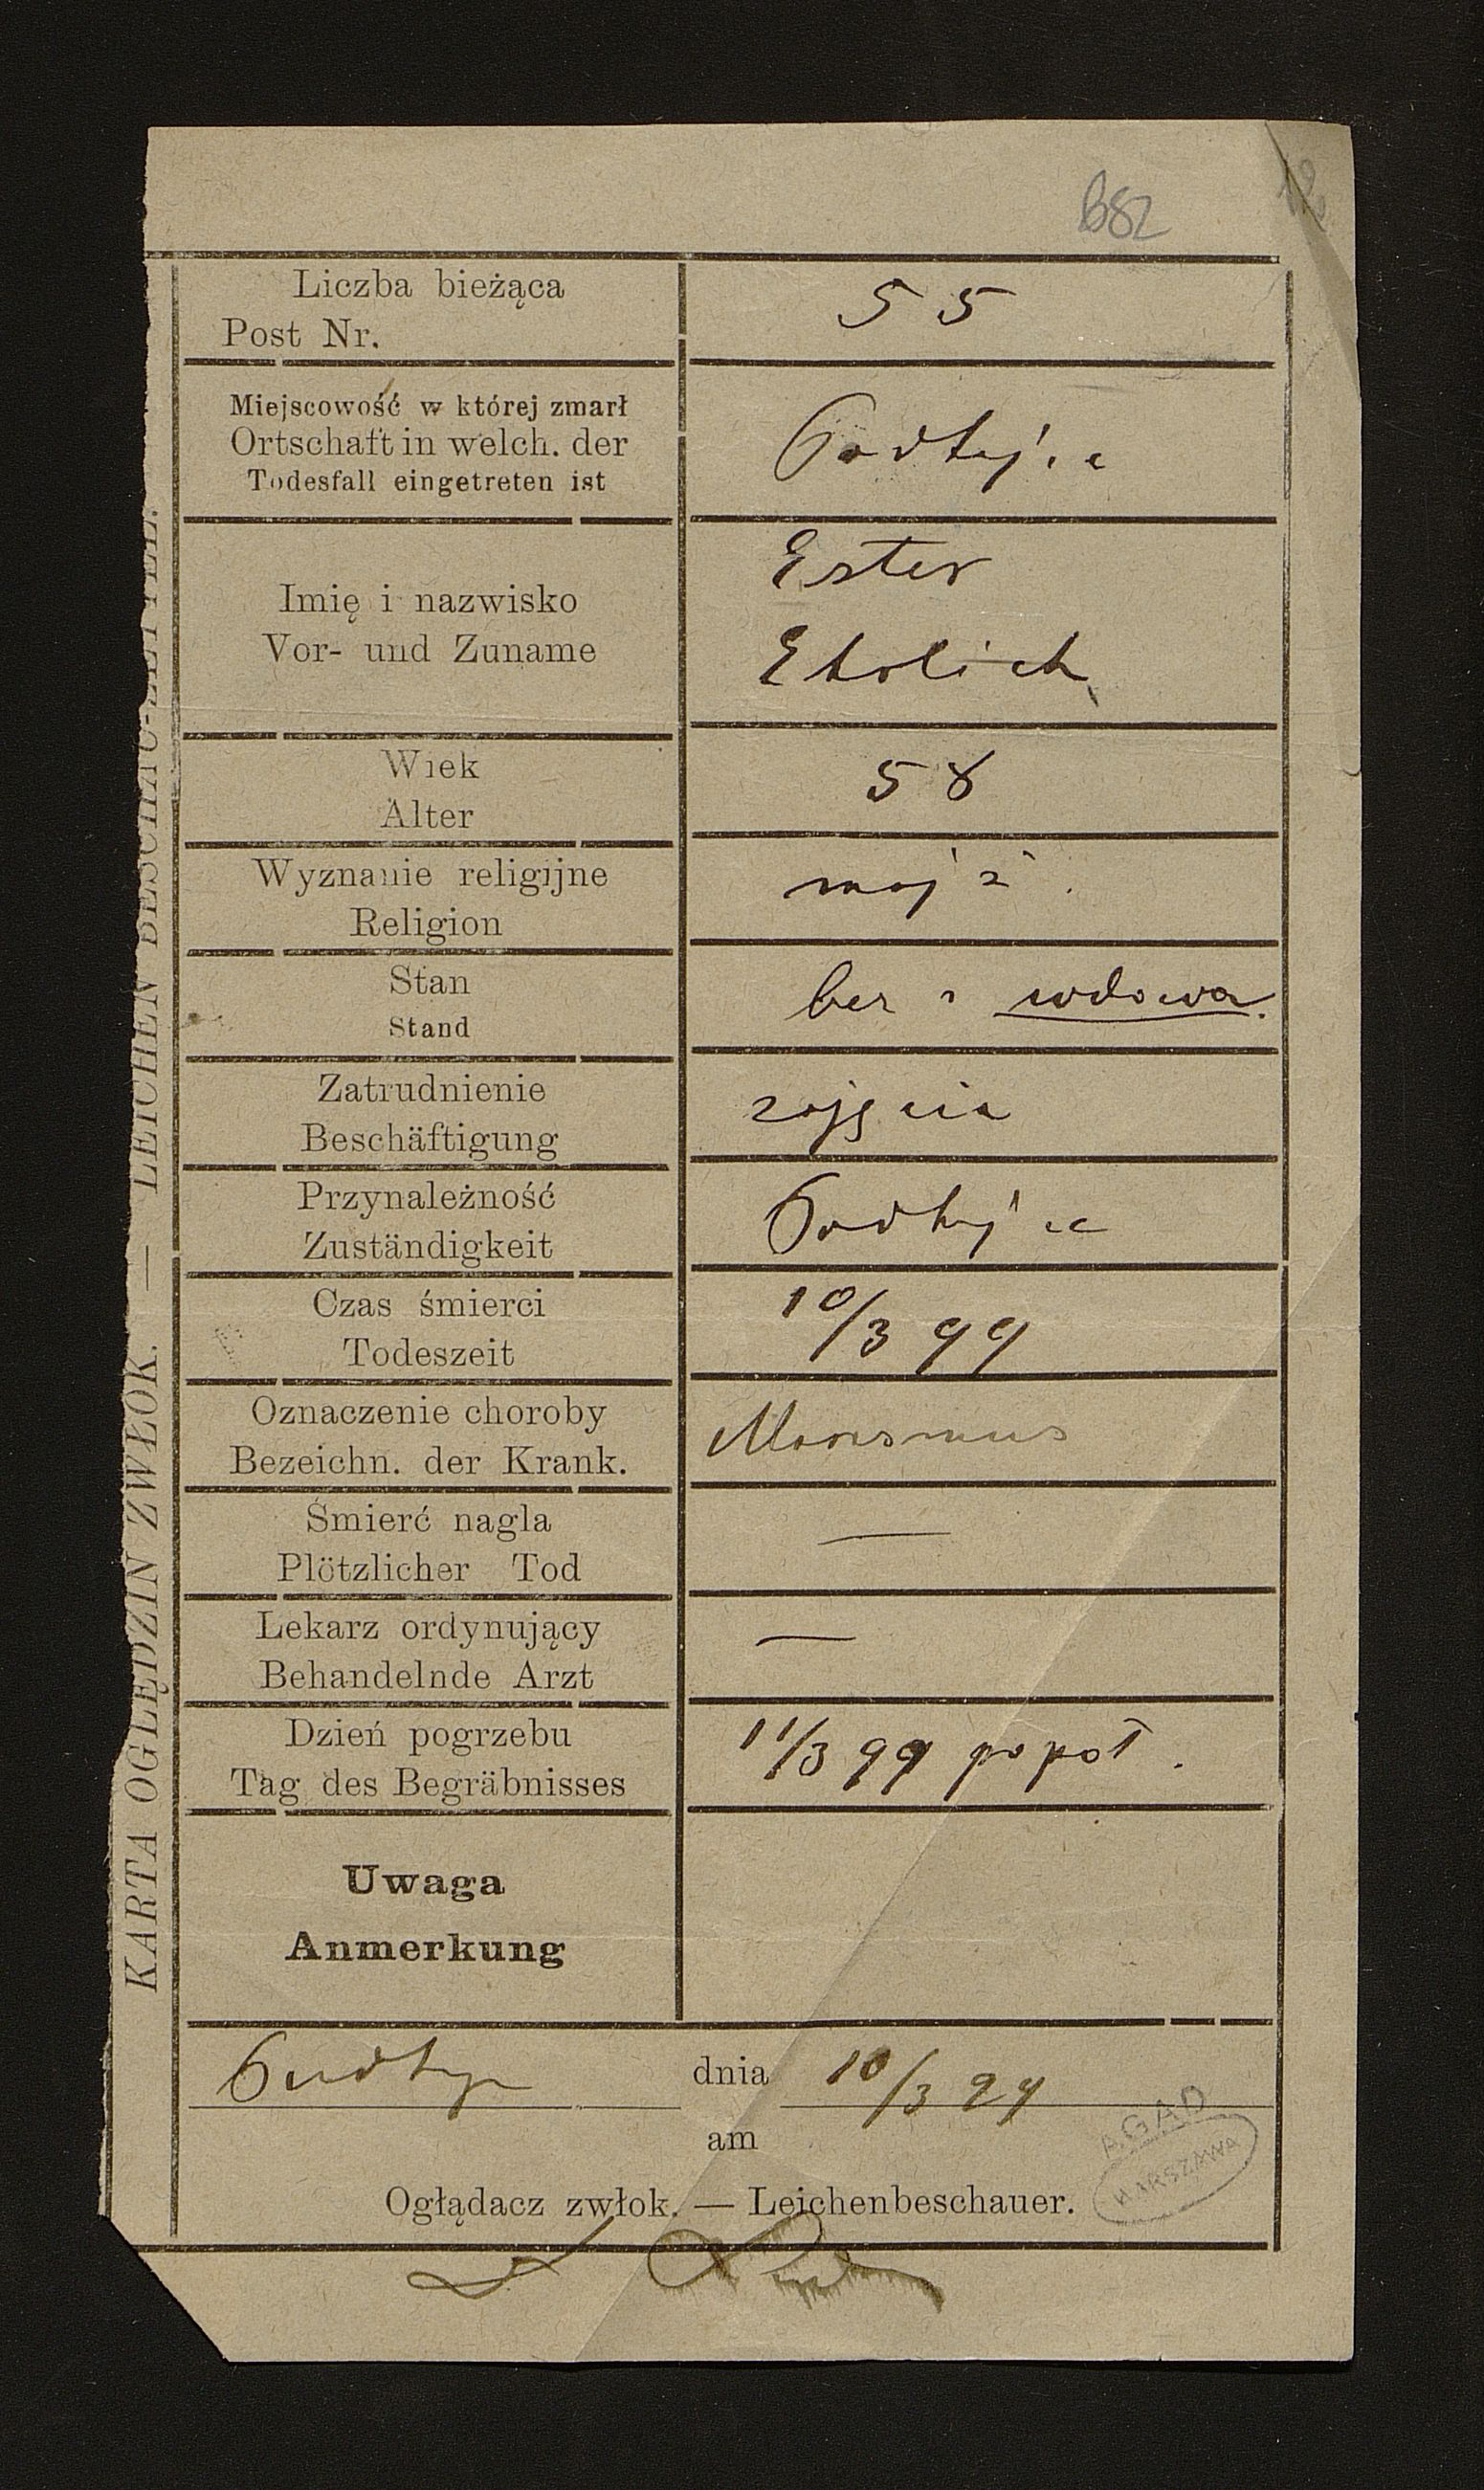 B82
12
KARTA OGLĘDZIN ZWŁOK. — LEICHEN BESCHAU-ZETTEL.
Liczba bieżąca
Post Nr.
55
Miejscowość w której zmarł
Ortschaft in welch. der
Todesfall eingetreten ist
Podhajce
Imię i nazwisko
Vor- und Zuname
Ester
Ehrlich
Wiek
Alter
58
Wyznanie religijne
Religion
mojż.
Stan
Stand
bez wdowa.
Zatrudnienie
Beschäftigung
zajęcia
Przynależność
Zuständigkeit
Podhajce
Czas śmierci
Todeszeit
10/3 99
Oznaczenie choroby
Bezeichn. der Krank.
Marasmus
Śmierć nagla
Plötzlicher Tod
—
Lekarz ordynujący
Behandelnde Arzt
—
Dzień pogrzebu
Tag des Begräbnisses
11/3 99 popoł.
Uwaga
Anmerkung
dnia 10/3 99
am
AGAD
WARSZAWA
Oglądacz zwłok. — Leichenbeschauer.